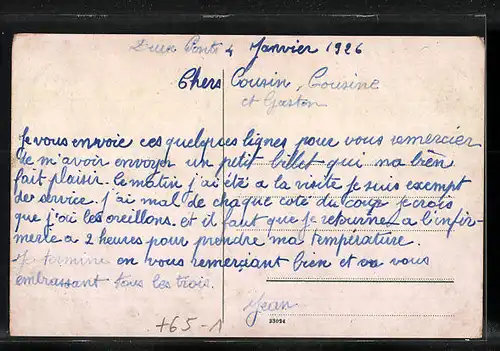 Deux Ponts 4 Janvier 1926
Chers Cousin, Cousine
et Gaston
Je vous envoie ces quelques lignes pour vous remercier
de m'avoir envoyer un petit billet qui ma bien
fait plaisir. Ce matin j'ai été a la visite je suis exempt
de service. j'ai mal de chaque coté du coup je crois
que j'ai les oreillons. et il faut que je retourne a l'infir-
merie a 2 heures pour prendre ma température.
Je termine en vous remerciant bien et va vous
embrassant tous les trois.
Jean
+65-1
33024